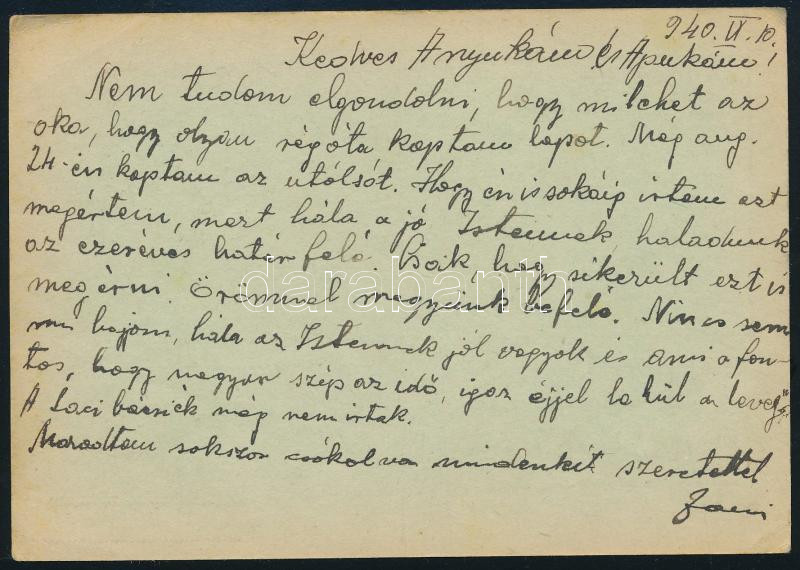 940. IX. 10.
Kedves Anyukám és Apukám!
Nem tudom elgondolni, hogy mi lehet az
oka, hogy olyan régóta kaptam lapot. Még aug.
24-én kaptam az utólsót. Hogy én is sokáig írtam ezt
megértem, mert hála a jó Istennek, haladunk
az ezeréves határ feló. Csak, hogy sikerült ezt is
megérni. Örömmel megyünk befeló. Nincs sem
mi bajom, hála az Istennek jól vagyok és ami a fon-
tos, hogy nagyon szép az idő, igaz éjjel le hül a levegő.
A Laci bácsiék még nem irtak.
Maradtam sokszor csókolva mindenkit szeretettel
darabanth